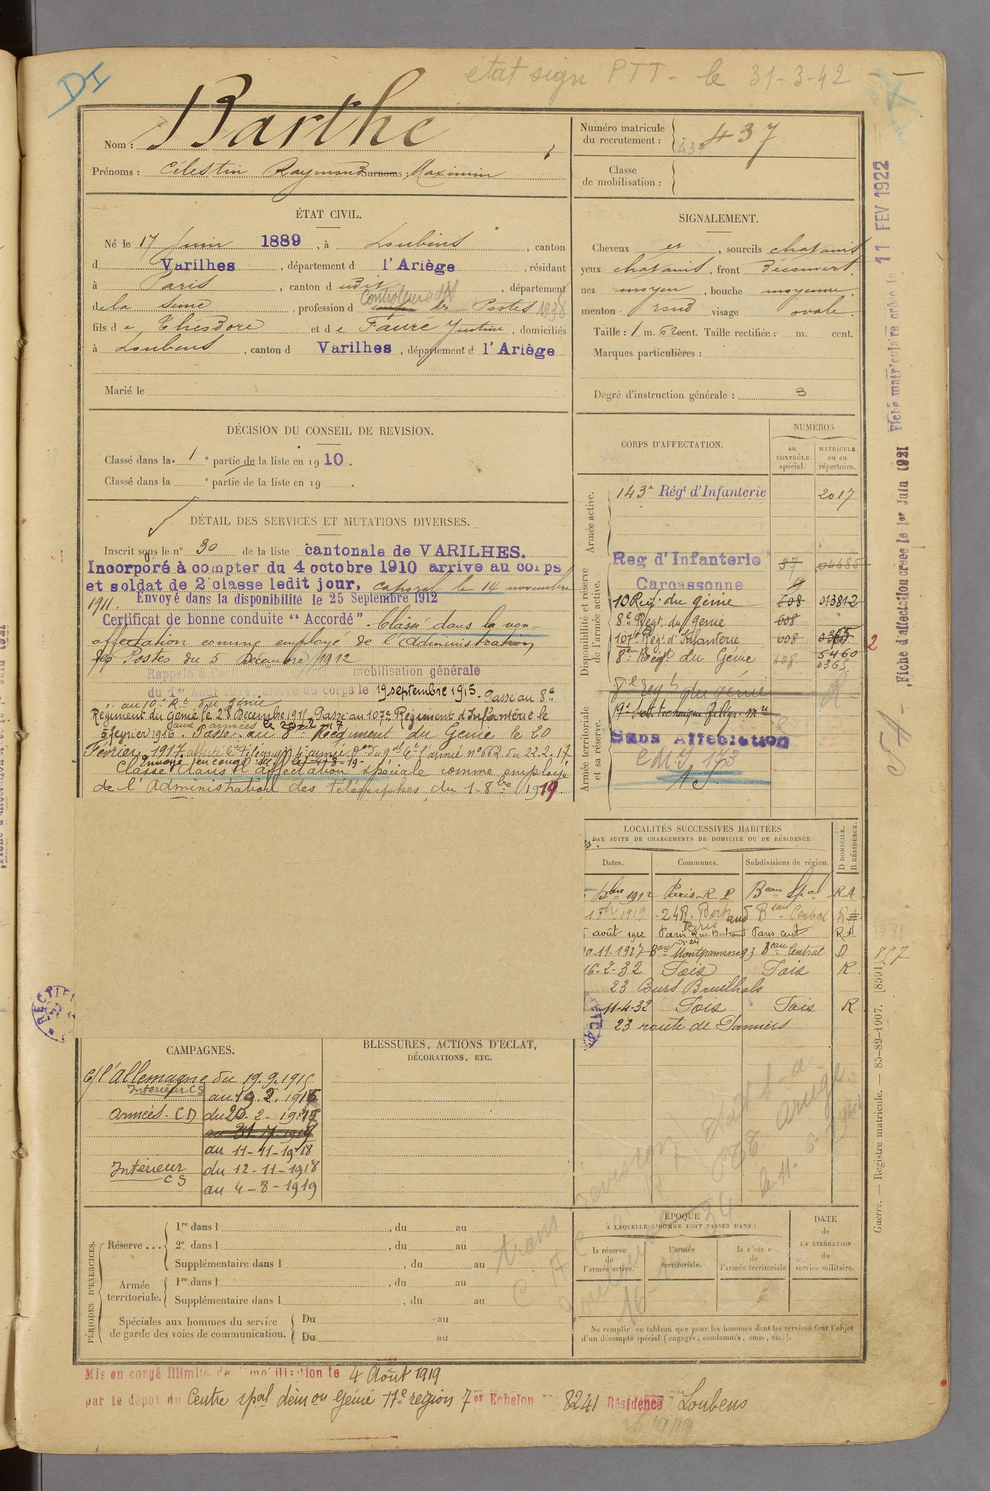 DI
etat sign PTT - le 31-3-42
Nom : Barthe
Prénoms : Célestin Raymond Surnoms : Maximin
Numéro matricule
du recrutement : 437
Classe
de mobilisation :
ÉTAT CIVIL.
Né le 17 Juin 1889, à Loubens, canton
d Varilhes, département d l'Ariège, résidant
à Paris, canton d udit, département
de la Seine, profession d Contrôleur des Postes 1938
fils de Théodore et de Faure Justine, domiciliés
à Loubens, canton d Varilhes, département d l'Ariège
Marié le
SIGNALEMENT.
Cheveux et, sourcils chatains
yeux chatains, front découvert
nez moyen, bouche moyenne
menton rond visage ovale.
Taille : 1 m. 62 cent. Taille rectifiée : m. cent.
Marques particulières :
Degré d'instruction générale : 3
11 FEV 1922
Fiche matriculaire créée le
Fiche d'affectation créée le 1er Juin 1921
DÉCISION DU CONSEIL DE REVISION.
Classé dans la 1e partie de la liste en 1910.
Classé dans la e partie de la liste en 19 .
CORPS D'AFFECTATION.
NUMÉROS
AU CONTRÔLE spécial.
MATRICULE OU AU répertoire.
Armée active.
143e Régt d'Infanterie 2017
Disponibilité et réserve de l'armée active.
Reg d'Infanterie 37
Carcassonne
10 Régt du génie 608 013812
8e Régt du génie 608
107e Régt d'Infanterie 608
8e Régt du Génie 608 5460
0365
2
Armée territoriale et sa réserve.
8e Regt du génie
Sans Affectation
DÉTAIL DES SERVICES ET MUTATIONS DIVERSES.
Inscrit sous le n° 30 de la liste cantonale de VARILHES.
Incorporé à compter du 4 octobre 1910 arrive au corps
et soldat de 2e classe ledit jour, caporal le 14 novembre
1911. Envoyé dans la disponibilité le 25 Septembre 1912
Certificat de bonne conduite "Accordé". Classé dans la non
affectation comme employé de l'Administration
des Postes du 5 Décembre 1912
Rappelé mobilisation générale
du 1er Août 1914, arrivé au corps le 19 septembre 1915. Passé au 8e
au 10e Rt du génie
Régiment du Génie le 28 Décembre 1915 Passé au 107e Régiment d'Infanterie le
5 février 1916. Passé au 8e Régiment du Génie le 20
Février 1917
Envoyé en congé
Classé dans l'affectation spéciale comme employé
de l'Administration des télégraphes du 1-8bre 1919.
LOCALITÉS SUCCESSIVES HABITÉES
PAR SUITE DE CHANGEMENTS DE DOMICILE OU DE RÉSIDENCE.
Dates. Communes. Subdivisions de région. D DOMICILE. R RÉSIDENCE.
1912 Paris R. P Beau Spal R.A
1919 24 R. Bertrand Beau Central R
août 1922 Paris Rue Bertrand Paris cent R A
20-11-1927 Bard Montparnasse 93 Beau Central D
16-2-32 Foix Foix R.
23 Cours Bouilhols
11-4-32 Foix Foix R
23 route de Pamiers
CAMPAGNES.
C/ l'Allemagne du 19.9.1915
Intérieur CS au 19.2.1916
Armées. CD du 20-2-1916
au 11-11-1918
Intérieur du 12-11-1918
CS au 4-8-1919
BLESSURES, ACTIONS D'ÉCLAT,
DÉCORATIONS, ETC.
PÉRIODES D'EXERCICES.
Réserve ... 1re dans l , du au
2e dans l , du au
Supplémentaire dans l , du au
Armée territoriale. 1re dans l , du au
Supplémentaire dans l , du au
Spéciales aux hommes du service
de garde des voies de communication. Du au
Du au
ÉPOQUE
À LAQUELLE L'HOMME DOIT PASSER DANS :
la réserve de l'armée active.
l'armée territoriale.
la réserve de l'armée territoriale
DATE de LA LIBÉRATION du service militaire.
Ne remplir ce tableau que pour les hommes dont les services font l'objet
d'un décompte spécial (engagés, condamnés, omis, etc.).
Guerre. — Registre matricule. — 85-89-1907. [8591]
Mis en congé illimité de démobilisation le 4 Août 1919
par le dépôt du Centre spal dém on Génie 17e région 7er Echelon 8241 Résidence Loubens